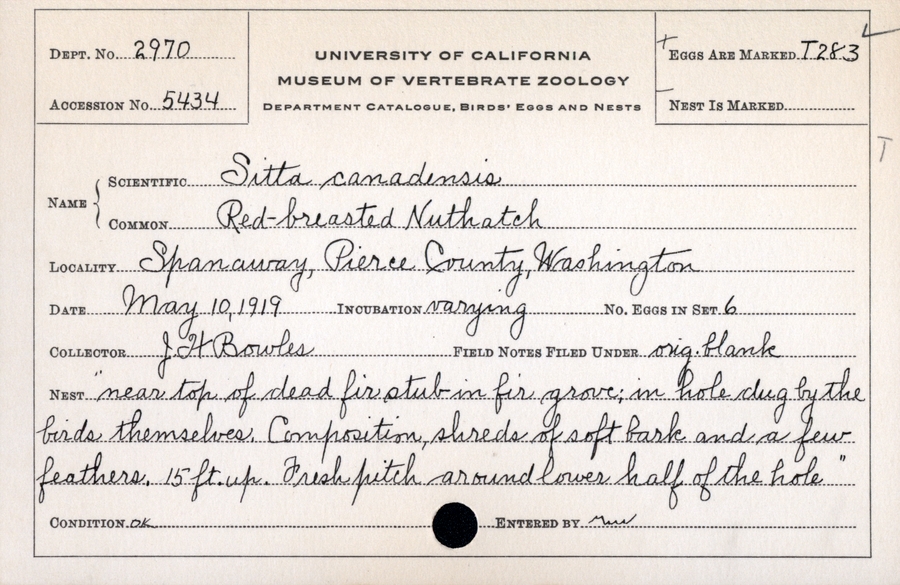 DEPT. NO. 2970
ACCESSION NO. 5434
UNIVERSITY OF CALIFORNIA
MUSEUM OF VERTEBRATE ZOOLOGY
DEPARTMENT CATALOGUE, BIRDS' EGGS AND NESTS
EGGS ARE MARKED T283
NEST IS MARKED
T
NAME
SCIENTIFIC Sitta canadensis
COMMON Red-breasted Nuthatch
LOCALITY Spanaway, Pierce County, Washington
DATE May 10, 1919 INCUBATION varying NO. EGGS IN SET 6
COLLECTOR J H Bowles FIELD NOTES FILED UNDER orig. blank
NEST "near top of dead fir stub in fir grove; in hole dug by the
birds themselves. Composition, shreds of soft bark and a few
feathers. 15 ft. up. Fresh pitch around lower half of the hole"
CONDITION OK ENTERED BY